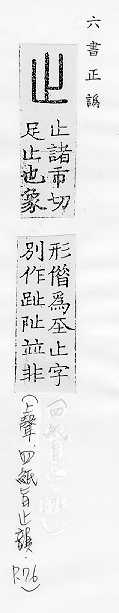 六書正譌
止
止諸市切
足止也象
形僭爲至止字
別作趾阯竝非
(上聲.四紙旨止韻.
P.76)